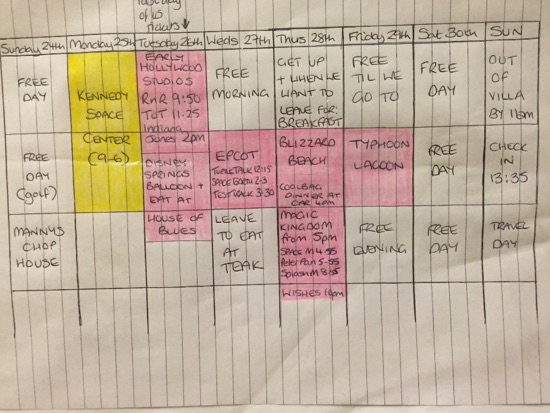 Tuesday
of us
Hours ↓
Sunday 24th
Monday 25th
Tuesday 26th
Weds 27th
Thus 28th
Friday 29th
Sat 30th
SUN
FREE
DAY
FREE
DAY
(golf)
MANNYS
CHOP
HOUSE
KENNEDY
SPACE
CENTER
(9-6)
EARLY
HOLLYWOOD
STUDIOS
RnR 9:50
ToT 11:25
Indiana
Jones 2pm
DISNEY
SPRINGS
BALLOON +
EAT AT
HOUSE OF
BLUES
FREE
MORNING
EPCOT
TURTLE TALK 12:15
SPACE EARTH 2-3
TEST TRACK 3:30
LEAVE
TO EAT
AT
TEAK
GET UP
+ WHEN WE
WANT TO
LEAVE FOR:
BREAKFAST
BLIZZARD
BEACH
COOLBAG
DINNER AT
CAR 4pm
MAGIC
KINGDOM
from 5pm
SPACE M 4:55
Peter Pan 5-55
Splash M 8:55
WISHES 10pm
FREE
TIL WE
GO TO
TYPHOON
LAGOON
FREE
EVENING
FREE
DAY
FREE
DAY
FREE
DAY
OUT
OF
VILLA
BY 11am
CHECK
IN
13:35
TRAVEL
DAY